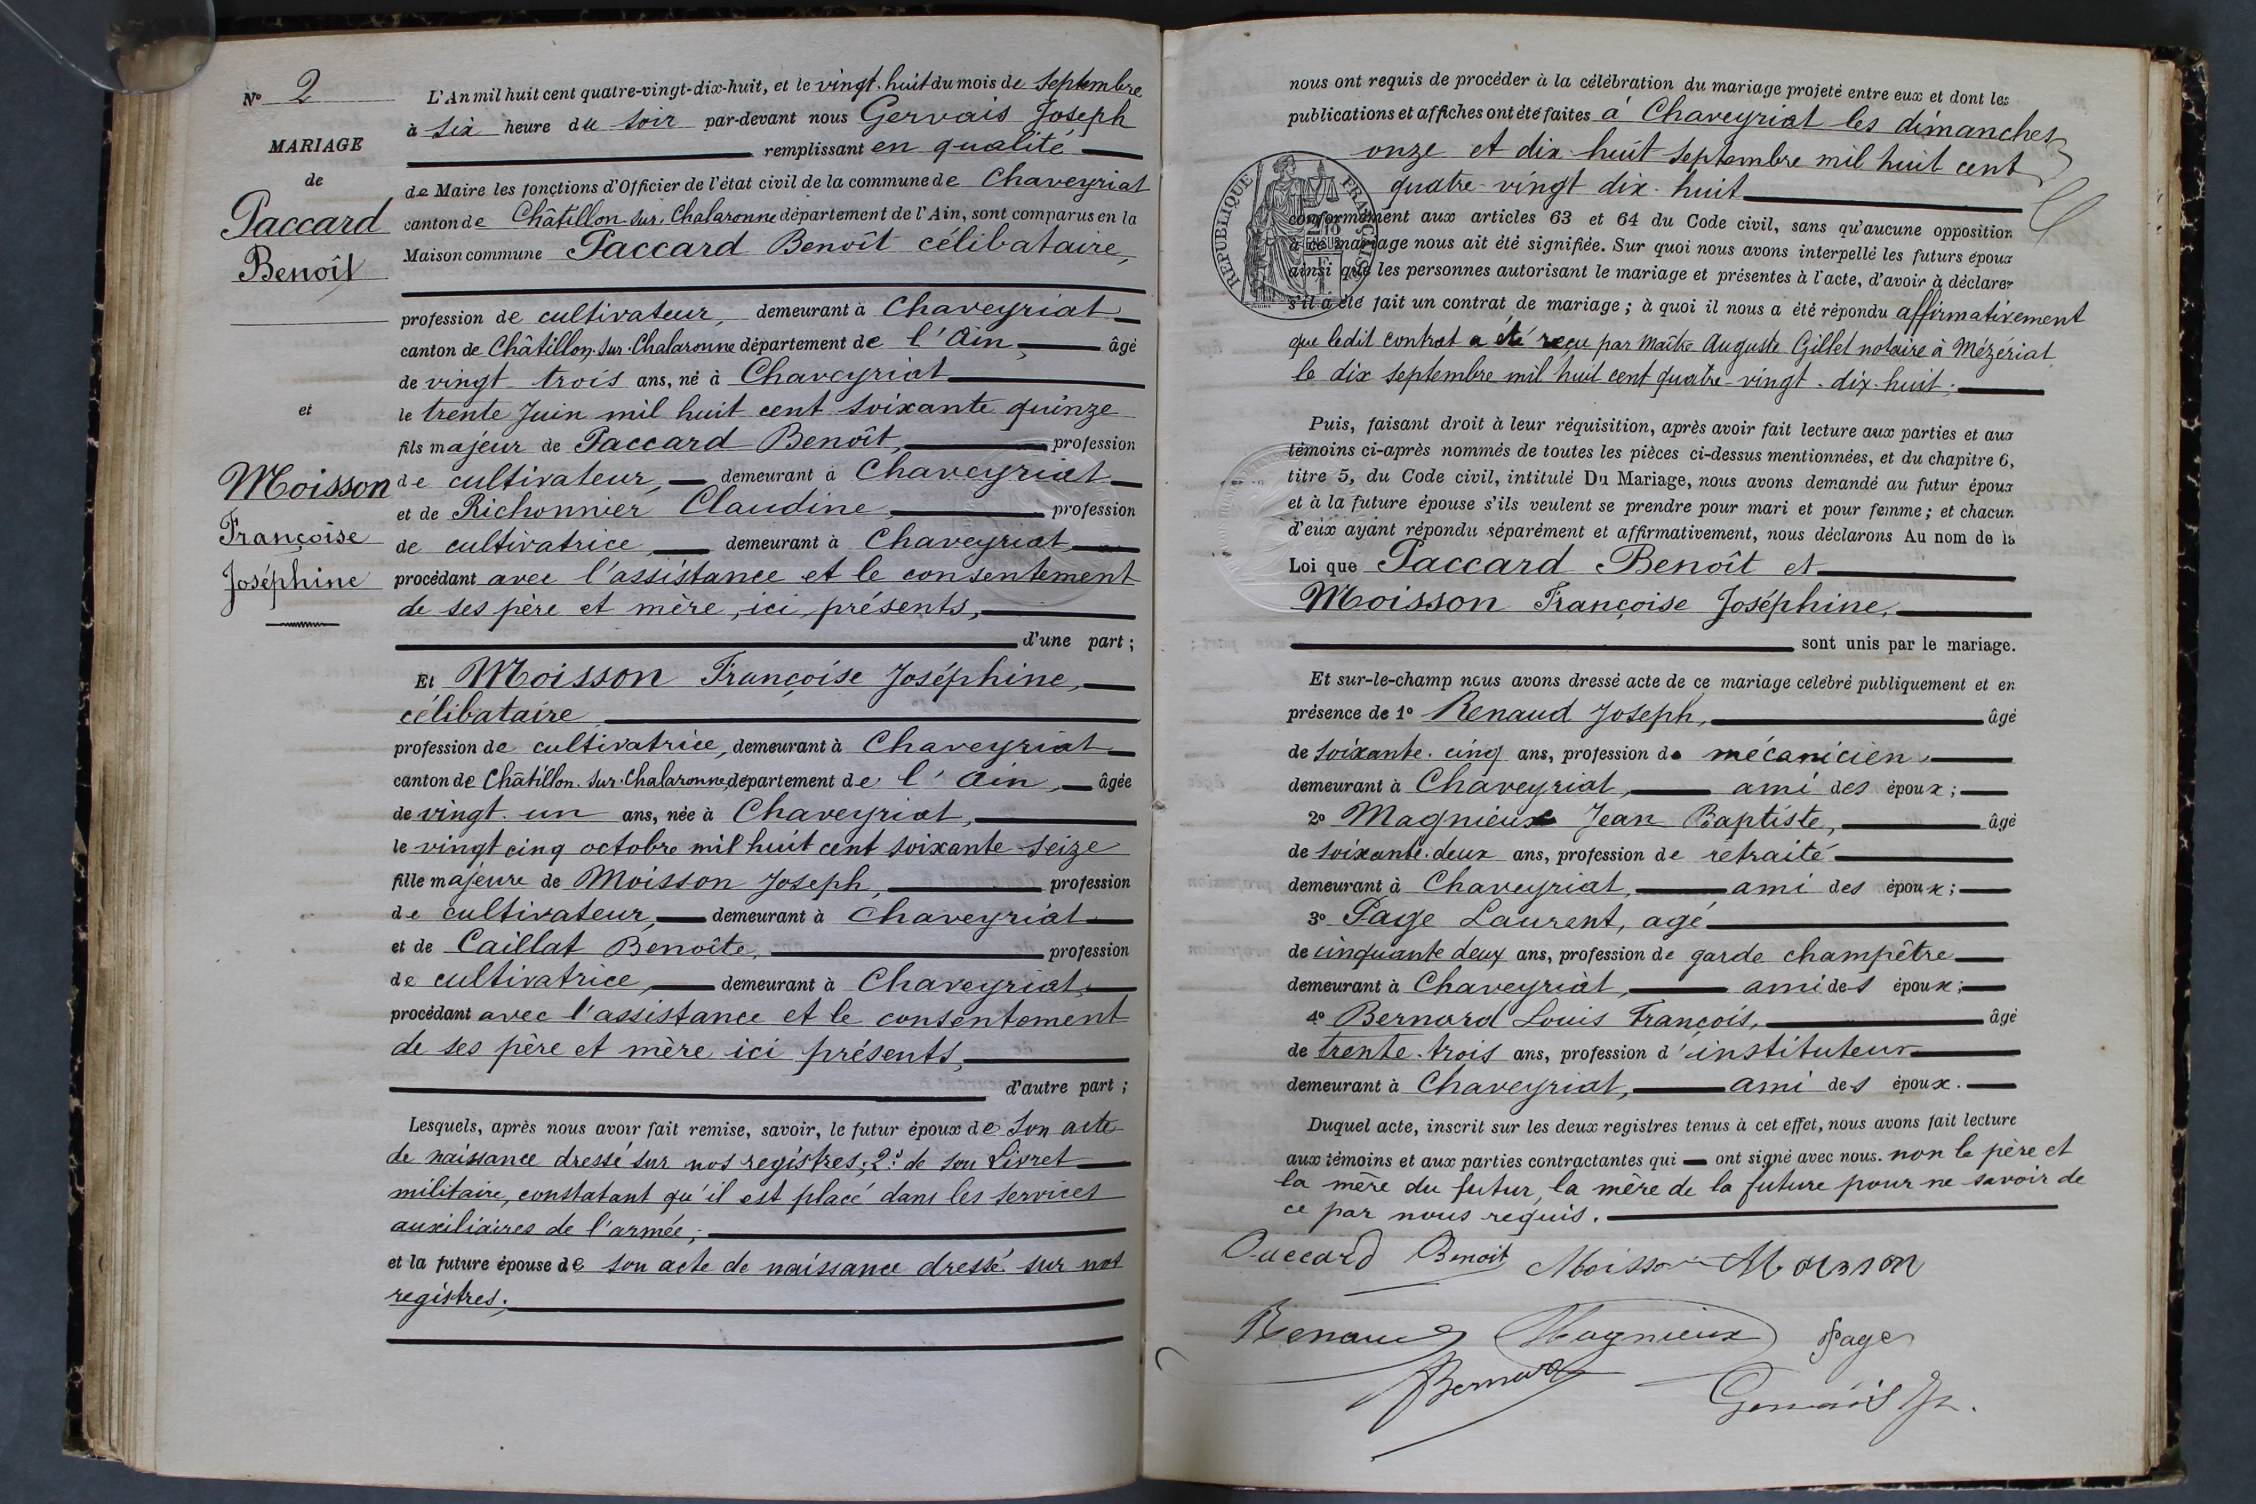 N° 2
MARIAGE
de
Paccard
Benoît
et
Moisson
Françoise
Joséphine
L'An mil huit cent quatre-vingt-dix-huit, et le vingt-huit du mois de Septembre
à six heure du soir par-devant nous Gervais Joseph
remplissant en qualité
de Maire les fonctions d'Officier de l'état civil de la commune de Chaveyriat
canton de Châtillon-sur-Chalaronne département de l'Ain, sont comparus en la
Maison commune Paccard Benoît célibataire,
profession de cultivateur, demeurant à Chaveyriat
canton de Châtillon-sur-Chalaronne département de l'Ain, âgé
de vingt-trois ans, né à Chaveyriat
le trente Juin mil huit cent soixante quinze
fils majeur de Paccard Benoît, profession
de cultivateur, demeurant à Chaveyriat
et de Richonnier Claudine, profession
de cultivatrice, demeurant à Chaveyriat,
procédant avec l'assistance et le consentement
de ses père et mère, ici présents,
d'une part;
Et Moisson Françoise Joséphine,
célibataire
profession de cultivatrice, demeurant à Chaveyriat
canton de Châtillon-sur-Chalaronne, département de l'Ain, âgée
de vingt-un ans, née à Chaveyriat,
le vingt cinq octobre mil huit cent soixante-seize
fille majeure de Moisson Joseph, profession
de cultivateur, demeurant à Chaveyriat
et de Caillat Benoîte, profession
de cultivatrice, demeurant à Chaveyriat,
procédant avec l'assistance et le consentement
de ses père et mère ici présents,
d'autre part;
Lesquels, après nous avoir fait remise, savoir, le futur époux de son acte
de naissance dressé sur nos registres; 2° de son Livret
militaire, constatant qu'il est placé dans les services
auxiliaires de l'armée;
et la future épouse de son acte de naissance dressé sur nos
registres;
nous ont requis de procéder à la célébration du mariage projeté entre eux et dont les
publications et affiches ont été faites à Chaveyriat les dimanches
onze et dix-huit septembre mil huit cent
quatre-vingt dix-huit
RÉPUBLIQUE FRANÇAISE
conformément aux articles 63 et 64 du Code civil, sans qu'aucune opposition
à ce mariage nous ait été signifiée. Sur quoi nous avons interpellé les futurs époux
ainsi que les personnes autorisant le mariage et présentes à l'acte, d'avoir à déclarer
s'il a été fait un contrat de mariage; à quoi il nous a été répondu affirmativement
que ledit contrat a été reçu par Maître Auguste Gillet notaire à Mézériat
le dix septembre mil huit cent quatre-vingt-dix-huit;
Puis, faisant droit à leur réquisition, après avoir fait lecture aux parties et aux
témoins ci-après nommés de toutes les pièces ci-dessus mentionnées, et du chapitre 6,
titre 5, du Code civil, intitulé Du Mariage, nous avons demandé au futur époux
et à la future épouse s'ils veulent se prendre pour mari et pour femme; et chacun
d'eux ayant répondu séparément et affirmativement, nous déclarons Au nom de la
Loi que Paccard Benoît et
Moisson Françoise Joséphine,
sont unis par le mariage.
Et sur-le-champ nous avons dressé acte de ce mariage célébré publiquement et en
présence de 1° Renaud Joseph, âgé
de soixante-cinq ans, profession de mécanicien,
demeurant à Chaveyriat, ami des époux;
2° Magnieux Jean Baptiste, âgé
de soixante-deux ans, profession de retraité
demeurant à Chaveyriat, ami des époux;
3° Page Laurent, agé
de cinquante deux ans, profession de garde champêtre
demeurant à Chaveyriat, ami des époux;
4° Bernard Louis François, âgé
de trente-trois ans, profession d'instituteur
demeurant à Chaveyriat, ami des époux.
Duquel acte, inscrit sur les deux registres tenus à cet effet, nous avons fait lecture
aux témoins et aux parties contractantes qui ont signé avec nous. non le père et
la mère du futur, la mère de la future pour ne savoir de
ce par nous requis.
Paccard Benoit Moisson Moisson
Renaud Magnieux Page
Bernard
Gervais Jh.